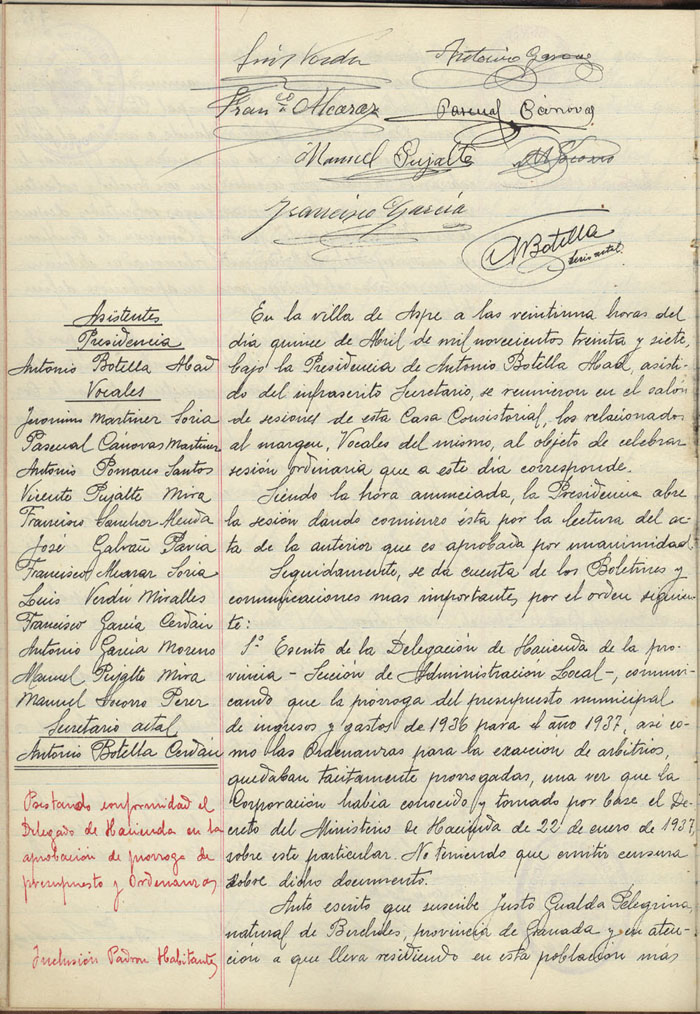 Luis Verdu
Antonio Garcia
Fran.co Alcaraz
Pascual Cánovas
Manuel Pujalte
Francisco García
ABotella
Asistentes
Presidencia
Antonio Botella Abad
Vocales
Jeronimo Martinez Soria
Pascual Cánovas Martinez
Antonio Pomares Santos
Vicente Pujalte Mira
Francisco Sanchez Alenda
José Galvañ Pavia
Francisco Alcaraz Soria
Luis Verdu Miralles
Francisco García Cerdán
Antonio García Moreno
Manuel Pujalte Mira
Manuel Socorro Perez
Secretario actal
Antonio Botella Cerdán
Prestando conformidad el
Delegado de Hacienda en la
aprobación de prórroga de
presupuesto y Ordenanzas
Inclusión Padron Habitantes
En la villa de Aspe a las veintiuna horas del
dia quince de Abril de mil novecientos treinta y siete,
bajo la Presidencia de Antonio Botella Abad, asisti-
do del infrascrito Secretario, se reunieron en el salón
de sesiones de esta Casa Consistorial, los relacionados
al margen, Vocales del mismo, al objeto de celebrar
sesión ordinaria que a este día corresponde.
Siendo la hora anunciada, la Presidencia abre
la sesión dando comienzo ésta por la lectura del ac-
ta de la anterior que es aprobada por unanimidad.
Seguidamente, se da cuenta de los Boletines y
comunicaciones mas importantes, por el orden siguien-
te:
1º Escrito de la Delegación de Hacienda de la pro-
vincia - Sección de Administracion Local -, comuni-
cando que la prórroga del presupuesto municipal
de ingresos y gastos de 1936 para el año 1937, asi co-
mo las Ordenanzas para la exacion de arbitrios,
quedaban tacitamente prorrogadas, una vez que la
Corporación habia conocido y tomado por base el De-
creto del Ministerio de Hacienda de 22 de enero de 1937,
sobre este particular. No teniendo que emitir censura
sobre dicho documento.
Ante escrito que suscribe Justo Gualda Pelegrina
natural de Berchules, provincia de Granada y en aten-
ción a que lleva residiendo en esta población más